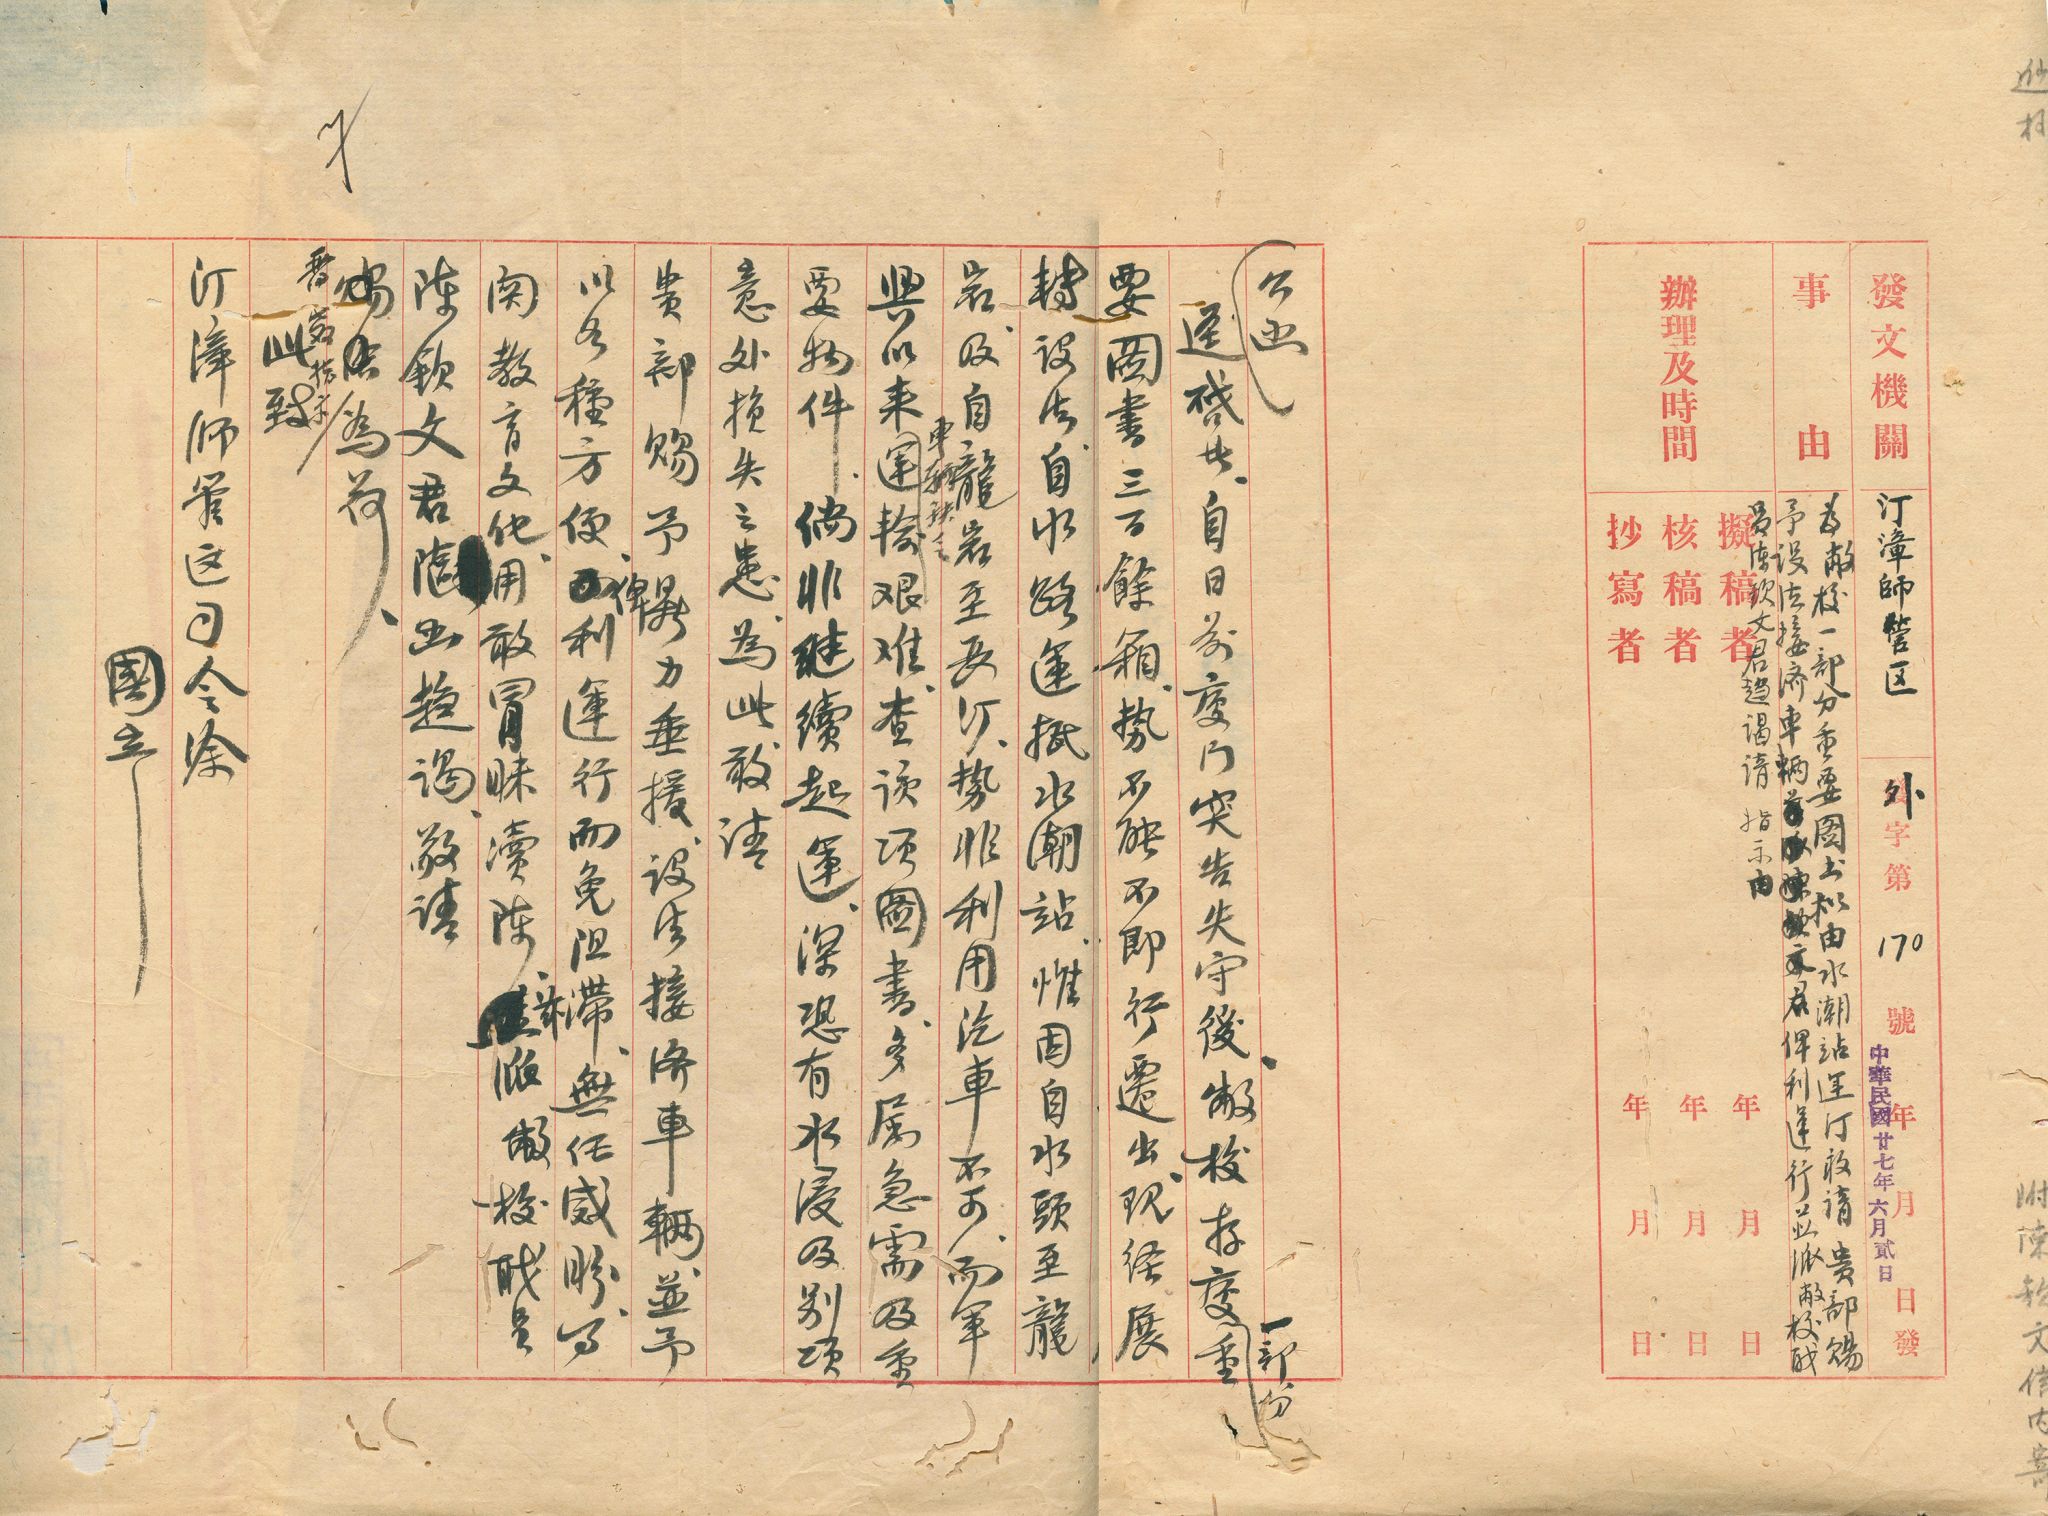 發文機關
汀漳師管区
外字第170號
年月日發
中華民國廿七年六月貳日
事由
為敝校一部分重要圖书拟由水潮站運汀敬請 貴部賜
予設法接濟車輛 俾利運行並派敝校職
員陳欽文君趨謁請 指示由
辦理及時間
擬稿者 年 月 日
核稿者 年 月 日
抄寫者 年 月 日
公函
逕啓者、自日前廈门突告失守後、敝校存廈重
一部份
要圖書三百餘箱、勢不能不即行遷出、現経展
轉设法自水路運抵水潮站、惟因自水頭至龍
岩、及自龍岩至長汀、勢非利用汽車不可、而軍
興以来運輸艰难、查该项圖書、多属急需及重
車輛缺乏
要物件、倘非継續起運、深恐有水浸及别项
意外损失之患、為此敬请
貴部賜予鼎力垂援、设法接济車輛、並予
以各種方便、俾利運行而免阻滯、無任感盼、事
関教育文化、用敢冒昧瀆陈、兹派敝校职员
陈欽文君 趋谒、敬请
賜 為荷、
此致
汀漳师管区司令徐
國立
附陳欽文信内寄